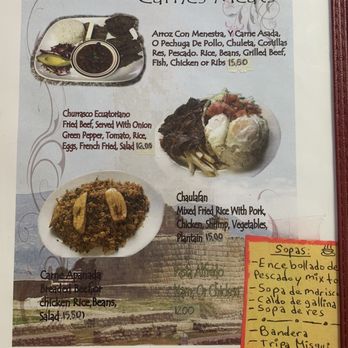 Carnes Meats
Arroz Con Menestra, Y Carne Asada,
O Pechuga De Pollo, Chuleta, Costillas
Res, Pescado. Rice, Beans, Grilled Beef,
Fish, Chicken or Ribs 15,50
Churrasco Ecuatoriano
Fried Beef, Served With Onion
Green Pepper, Tomato, Rice,
Eggs, French Fried, Salad 16.00
Chaulafan
Mixed Fried Rice With Pork,
Chicken, Shrimp, Vegetables,
Plantain 15.00
Carne Apanada
Breaded Beef or
chicken Rice, Beans,
Salad 15,50
Pasta Alfredo
Ham Or Chicken
12.00
Sopas:
- Encebollado de
Pescado y mixto
- Sopa de marisco
- Caldo de gallina
- Sopa de res
- Bandera
- Tripa Misqui